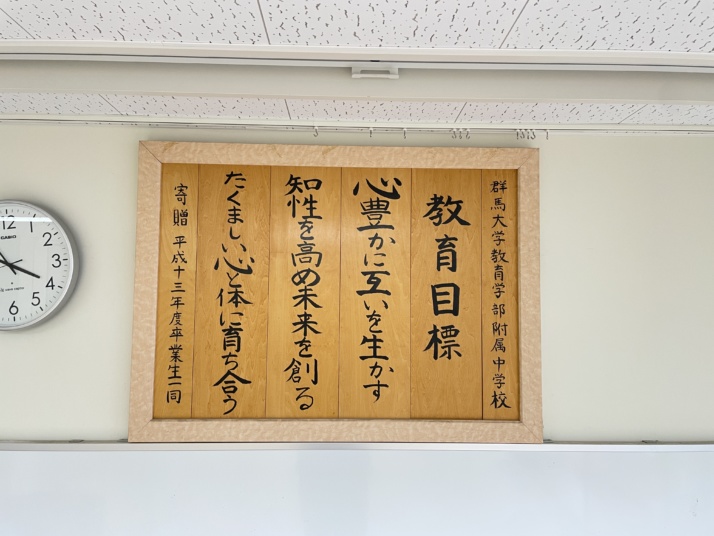 群馬大学教育学部附属中学校
教育目標
心豊かに互いを生かす
知性を高め未来を創る
たくましい心と体に育ち合う
寄贈 平成十三年度卒業生一同
CASIO
12
1
2
3
4
5
6